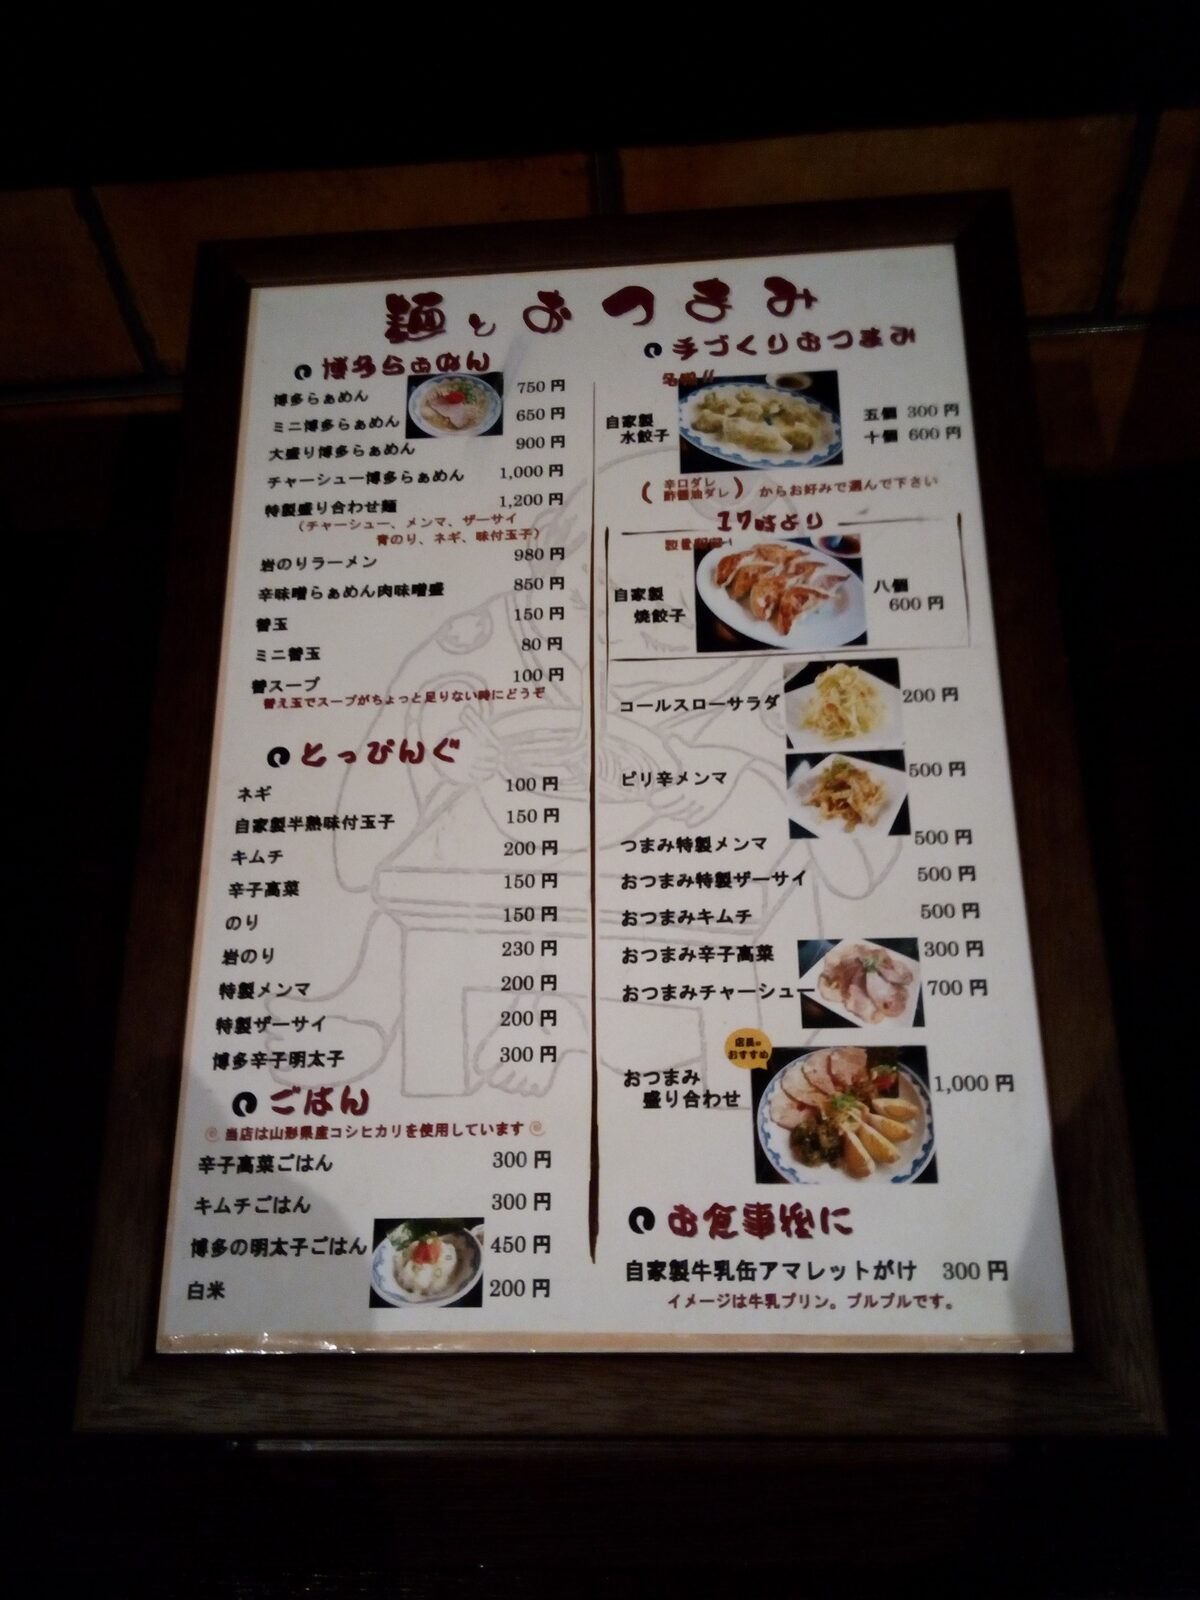 麺とおつまみ
博多らぁめん
博多らぁめん 750円
ミニ博多らぁめん 650円
大盛り博多らぁめん 900円
チャーシュー博多らぁめん 1,000円
特製盛り合わせ麺 1,200円
(チャーシュー、メンマ、ザーサイ
青のり、ネギ、味付玉子)
岩のりラーメン 980円
辛味噌らぁめん肉味噌盛 850円
替玉 150円
ミニ替玉 80円
替スープ 100円
替え玉でスープがちょっと足りない時にどうぞ
とっぴんぐ
ネギ 100円
自家製半熟味付玉子 150円
キムチ 200円
辛子高菜 150円
のり 150円
岩のり 230円
特製メンマ 200円
特製ザーサイ 200円
博多辛子明太子 300円
ごはん
当店は山形県産コシヒカリを使用しています
辛子高菜ごはん 300円
キムチごはん 300円
博多の明太子ごはん 450円
白米 200円
手づくりおつまみ
名物!!
自家製
水餃子
五個 300円
十個 600円
(辛口ダレ
酢醤油ダレ) からお好みで選んで下さい
17時より
自家製
焼餃子
八個
600円
コールスローサラダ 200円
ピリ辛メンマ 500円
つまみ特製メンマ 500円
おつまみ特製ザーサイ 500円
おつまみキムチ 500円
おつまみ辛子高菜 300円
おつまみチャーシュー 700円
店長の
おすすめ
おつまみ
盛り合わせ 1,000円
お食事後に
自家製牛乳缶アマレットがけ 300円
イメージは牛乳プリン。プルプルです。